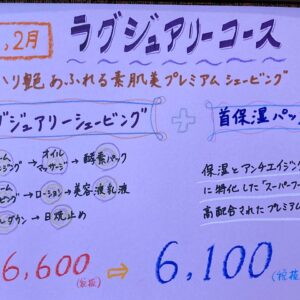 ,2月 ラグジュアリーコース
ハリ艶あふれる素肌美プレミアムシェービング
グジュアリーシェービング + 首保湿パッ
ーム
ージング → オイル
マッサージ → 酵素パック
ーム
ービング → ローション → 美容液乳液
ルダウン → 日焼止め
保湿とアンチエイジング
に特化した"スーパープ
高配合されたプレミアム
6,600(税抜) ⇨ 6,100(税抜